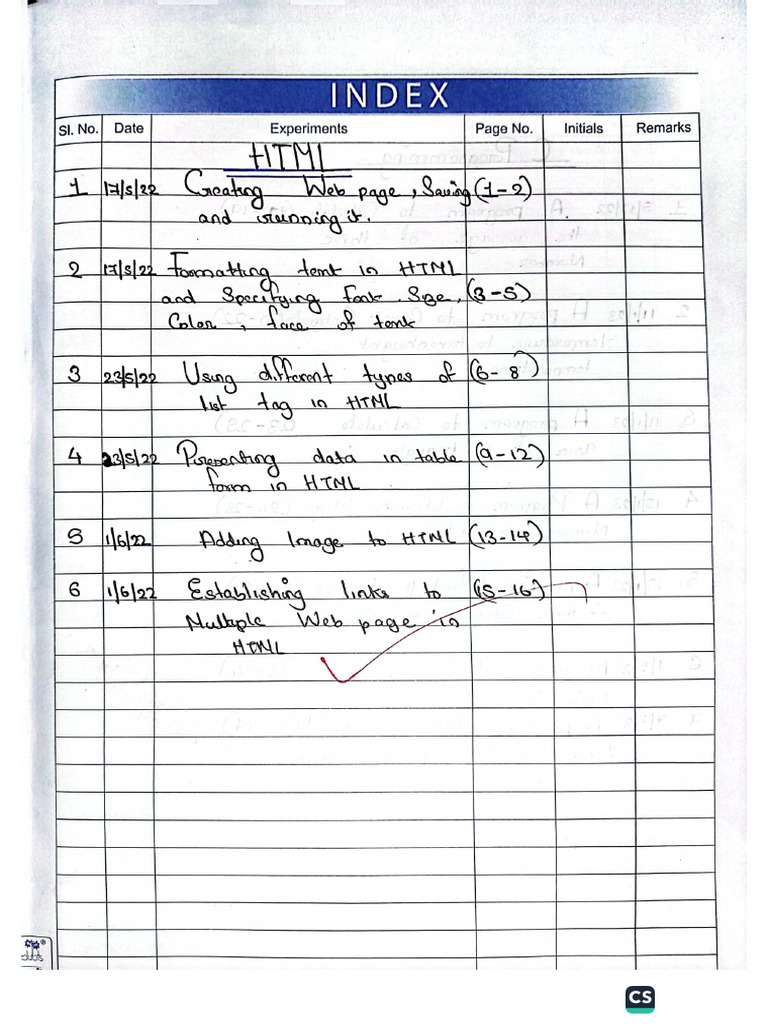 INDEX
Sl. No. Date Experiments Page No. Initials Remarks
HTML
1 17/5/22 Creating Web page, Saving (1-2)
and running it.
2 17/5/22 Formatting text in HTML
and Specifying Font Size, (3-5)
Color, face of text
3 23/5/22 Using different types of (6-8)
list tag in HTML
4 23/5/22 Presenting data in table (9-12)
form in HTML
5 1/6/22 Adding Image to HTML (13-14)
6 1/6/22 Establishing links to (15-16)
Multiple Web page in
HTML
CS